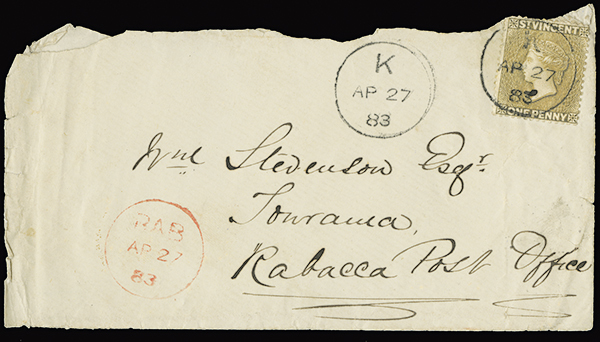 ST VINCENT
K
AP 27
83
ONE PENNY
K
AP 27
83
Wm Stevenson Esqr.
Tourama,
Rabacca Post Office
RAB
AP 27
83